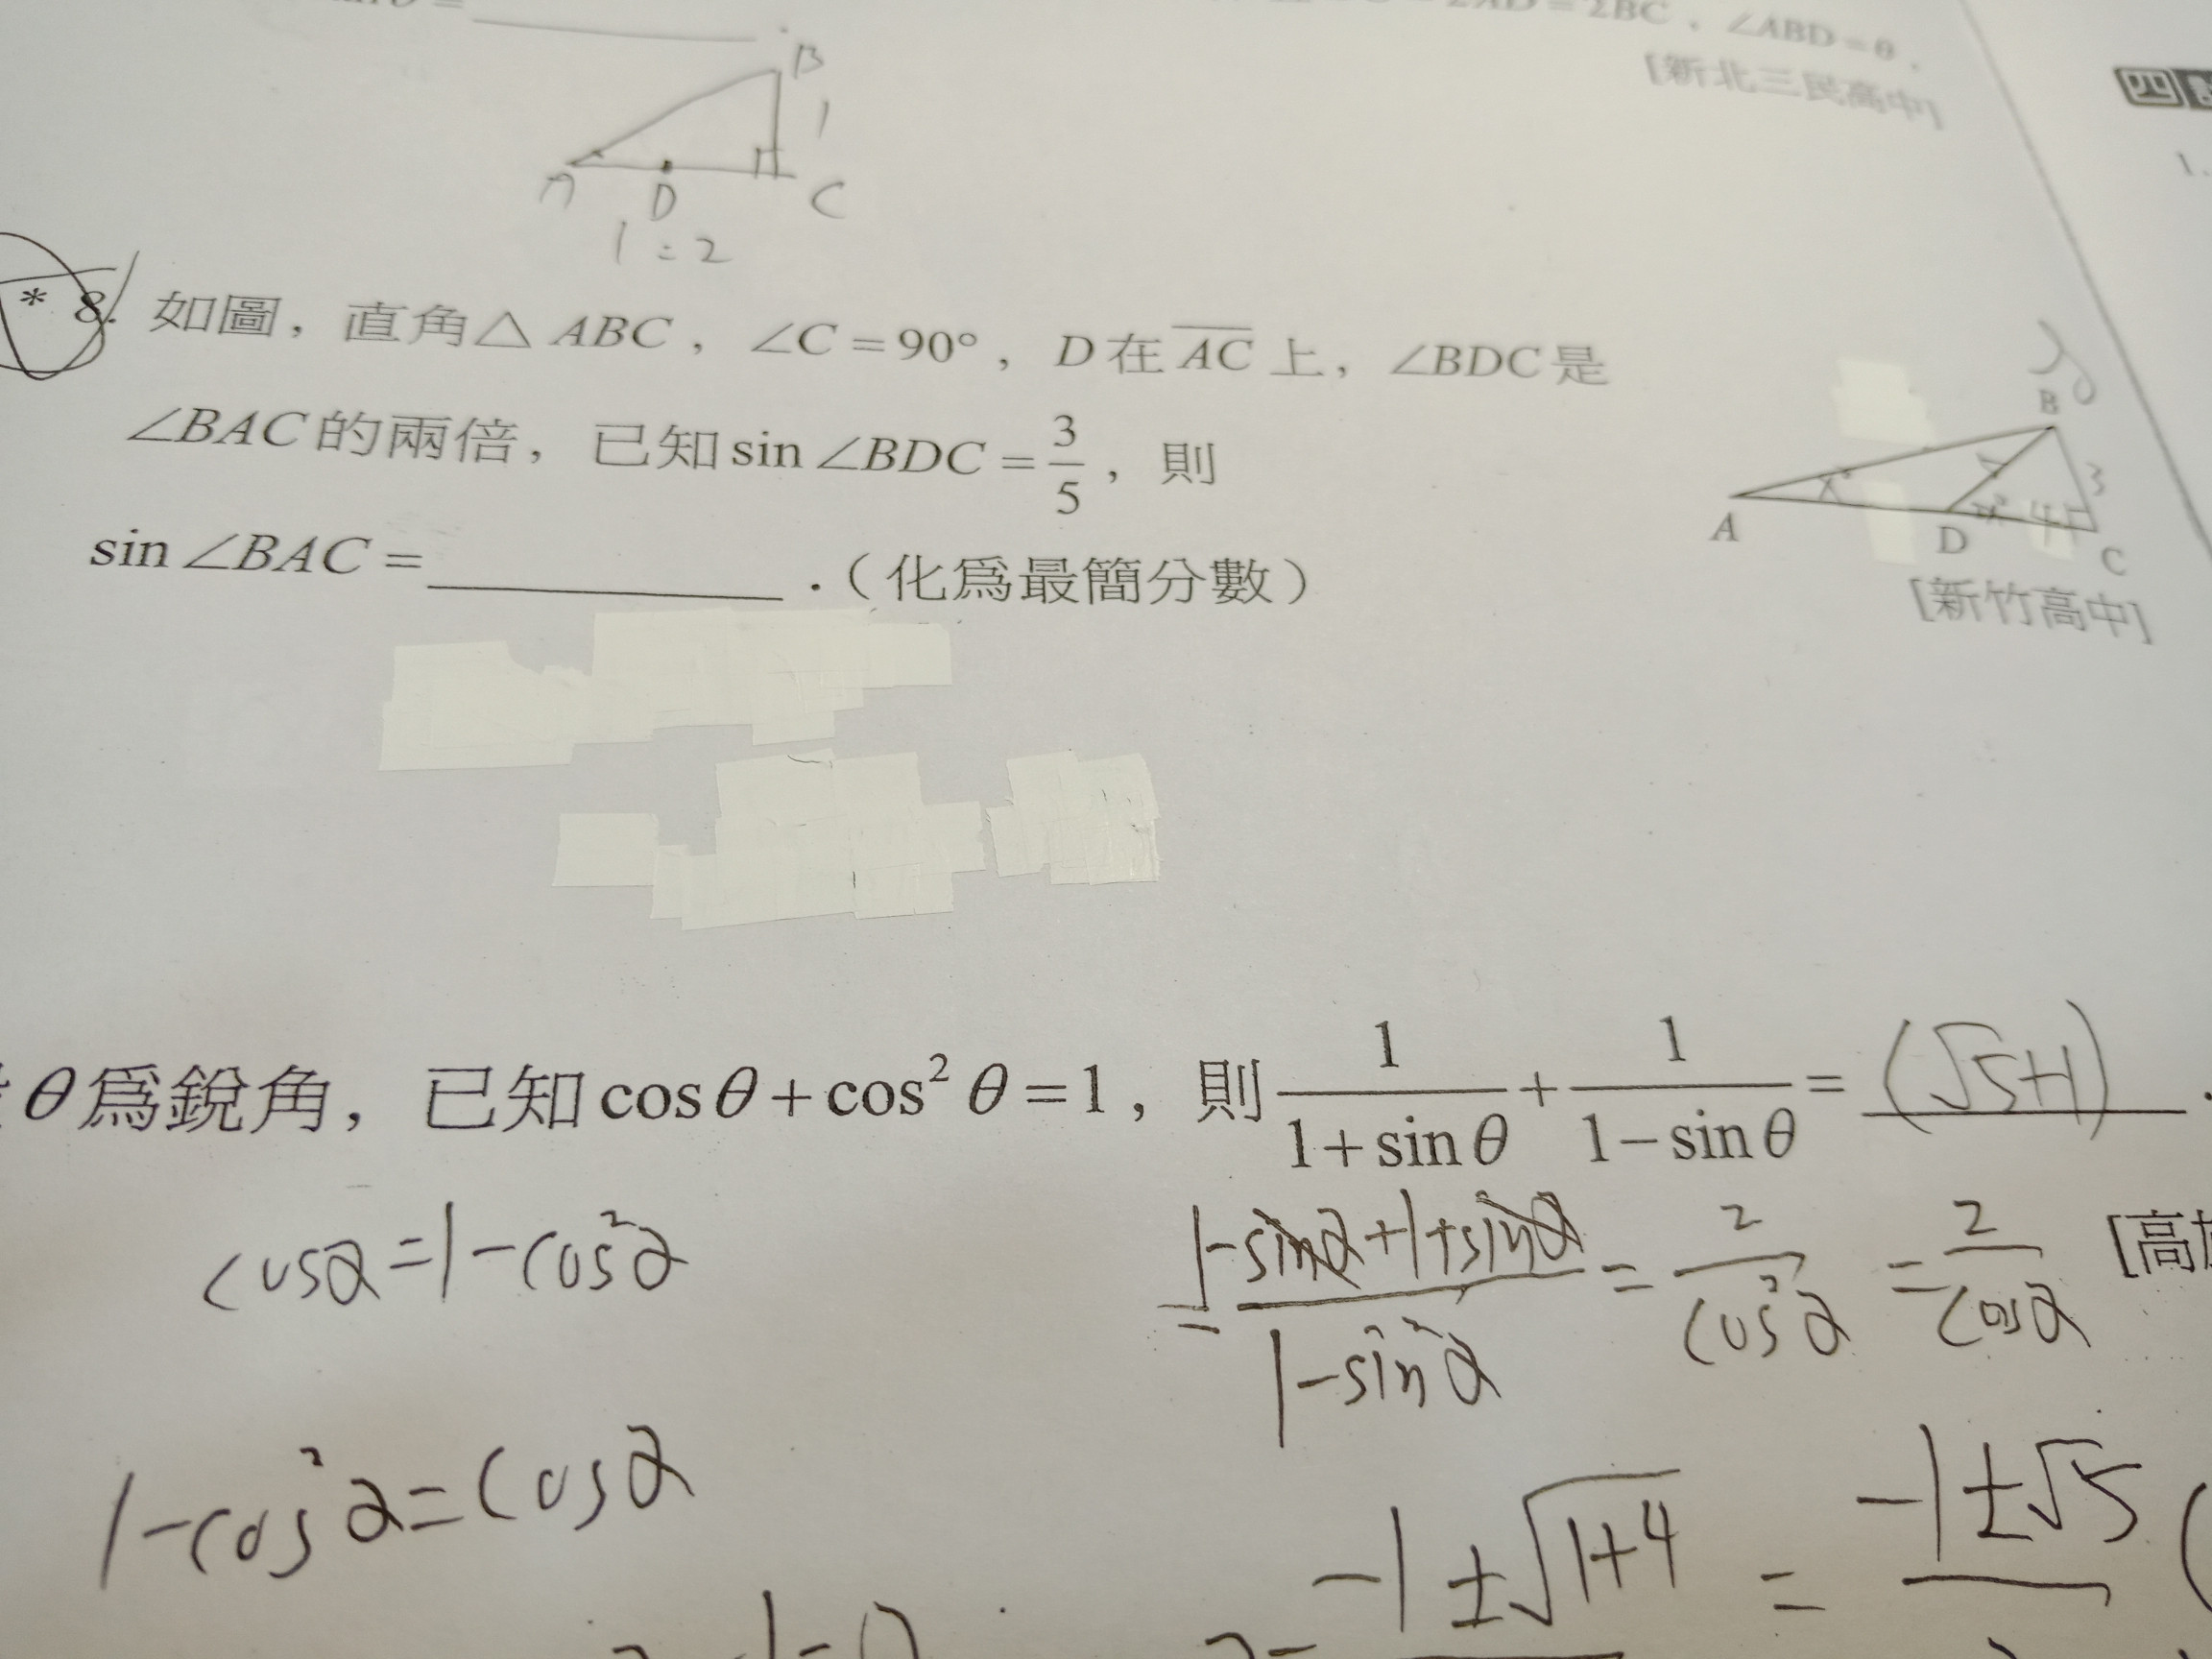 ∠ABD=θ.
[新北三民高中]
四
1.
B
1
A D C
1:2
* 8. 如圖，直角△ABC，∠C=90°，D在\overline{AC}上，∠BDC是
∠BAC的兩倍，已知sin∠BDC=\frac{3}{5}，則
sin∠BAC=________．（化為最簡分數）
B
5 3
4
A D C
[新竹高中]
θ為銳角，已知cosθ+cos²θ=1，則\frac{1}{1+sinθ}+\frac{1}{1-sinθ}=(√5+1).
cos∂=1-cos²∂
=\frac{1-sin∂+1+sin∂}{1-sin²∂}=\frac{2}{cos²∂}=\frac{2}{cos∂}
1-cos²∂=cos∂
-1±√1+4 = -1±√5